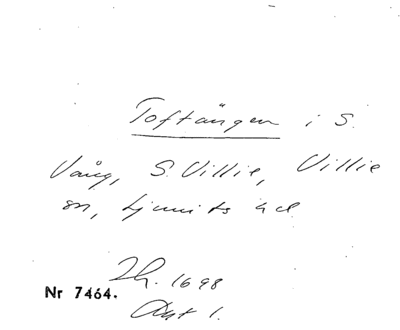 Toftängen i S.
Vång, S. Villie, Villie
sn, Ljunits hd
Lh. 1698
Nr 7464.
Akt 1.